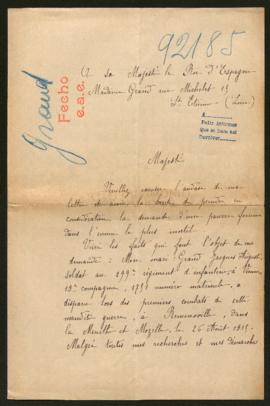 92185
Grand
Fecho
e.a.e.
A sa Majesté le Roi d'Espagne
Madame Grand rue Michelet 13
St Etienne - (Loire)
A
Pedir informes
Majesté
Veuillez l'audace de ma
lettre et avoir la bonté de prendre en
considération la demande d'une pauvre femme
dans l'ennui le plus mortel
Voici les faits qui font l'objet de ma
demande : Mon mari Grand Jacques
soldat au 299e régiment d'infanterie à Vienne
19e compagnie, numéro matricule, a
disparu lors des premiers combats de cette
maudite guerre, à dans
la Meurthe et Mozelle, le 26 Août
Malgré toutes mes recherches et mes démarches